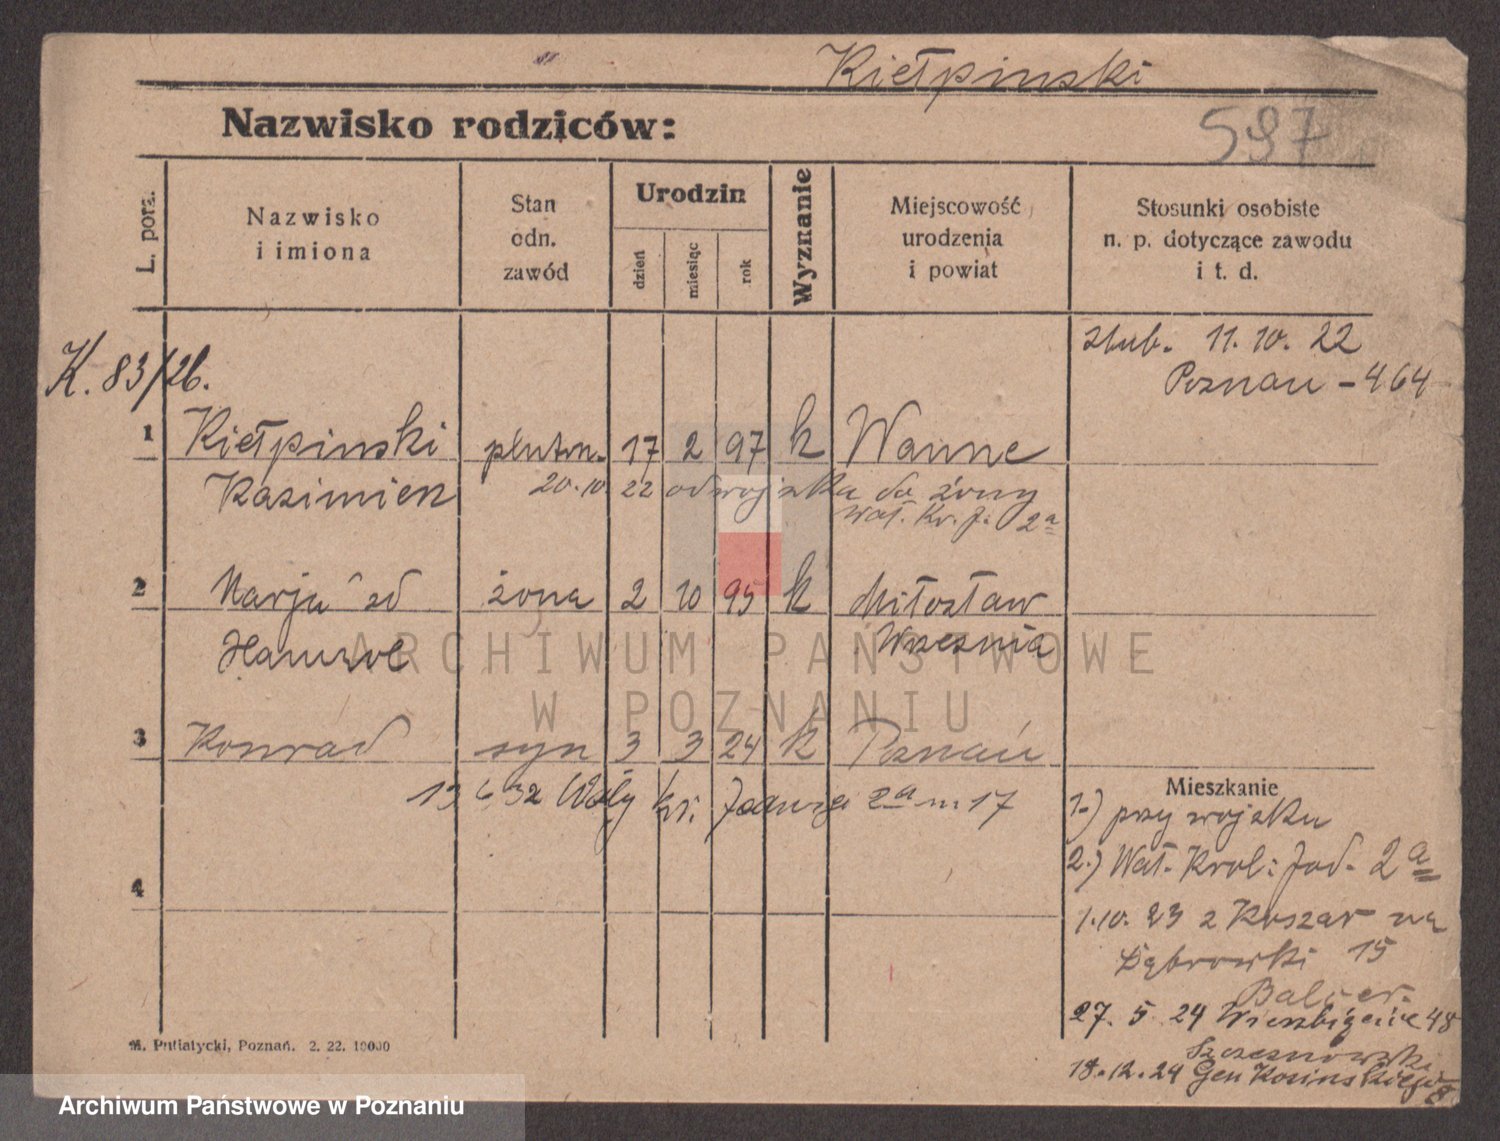 Kiełpinski
Nazwisko rodziców:
597
L. porz.
Nazwisko
i imiona
Stan
odn.
zawód
Urodzin
dzień
miesiąc
rok
Wyznanie
Miejscowość
urodzenia
i powiat
Stosunki osobiste
n. p. dotyczące zawodu
i t. d.
K. 83/26.
ślub. 11. 10. 22
Poznań - 464
1 Kiełpinski pluton. 17 2 97 k Wanne
Kazimierz 20.10 22 od wojska do żony
wał. Kr. J. 2a
2 Marja zd żona 2 10 95 k Miłosław
Września
ARCHIWUM PAŃSTWOWE
W POZNANIU
3 Konrad syn 3 3 24 k Poznań
13 6 32 Wały kr. Jadwigi 2a m 17
Mieszkanie
1.) przy wojsku
2.) Wał. Krol: Jad. 2a
1.10. 23 z Koszar na
Dąbrowski 15
27. 5 24 Wierzbięcice 48
18.12.24 Gen Kosinskiego 8
4
M. Putiatycki, Poznań. 2. 22. 10000
Archiwum Państwowe w Poznaniu